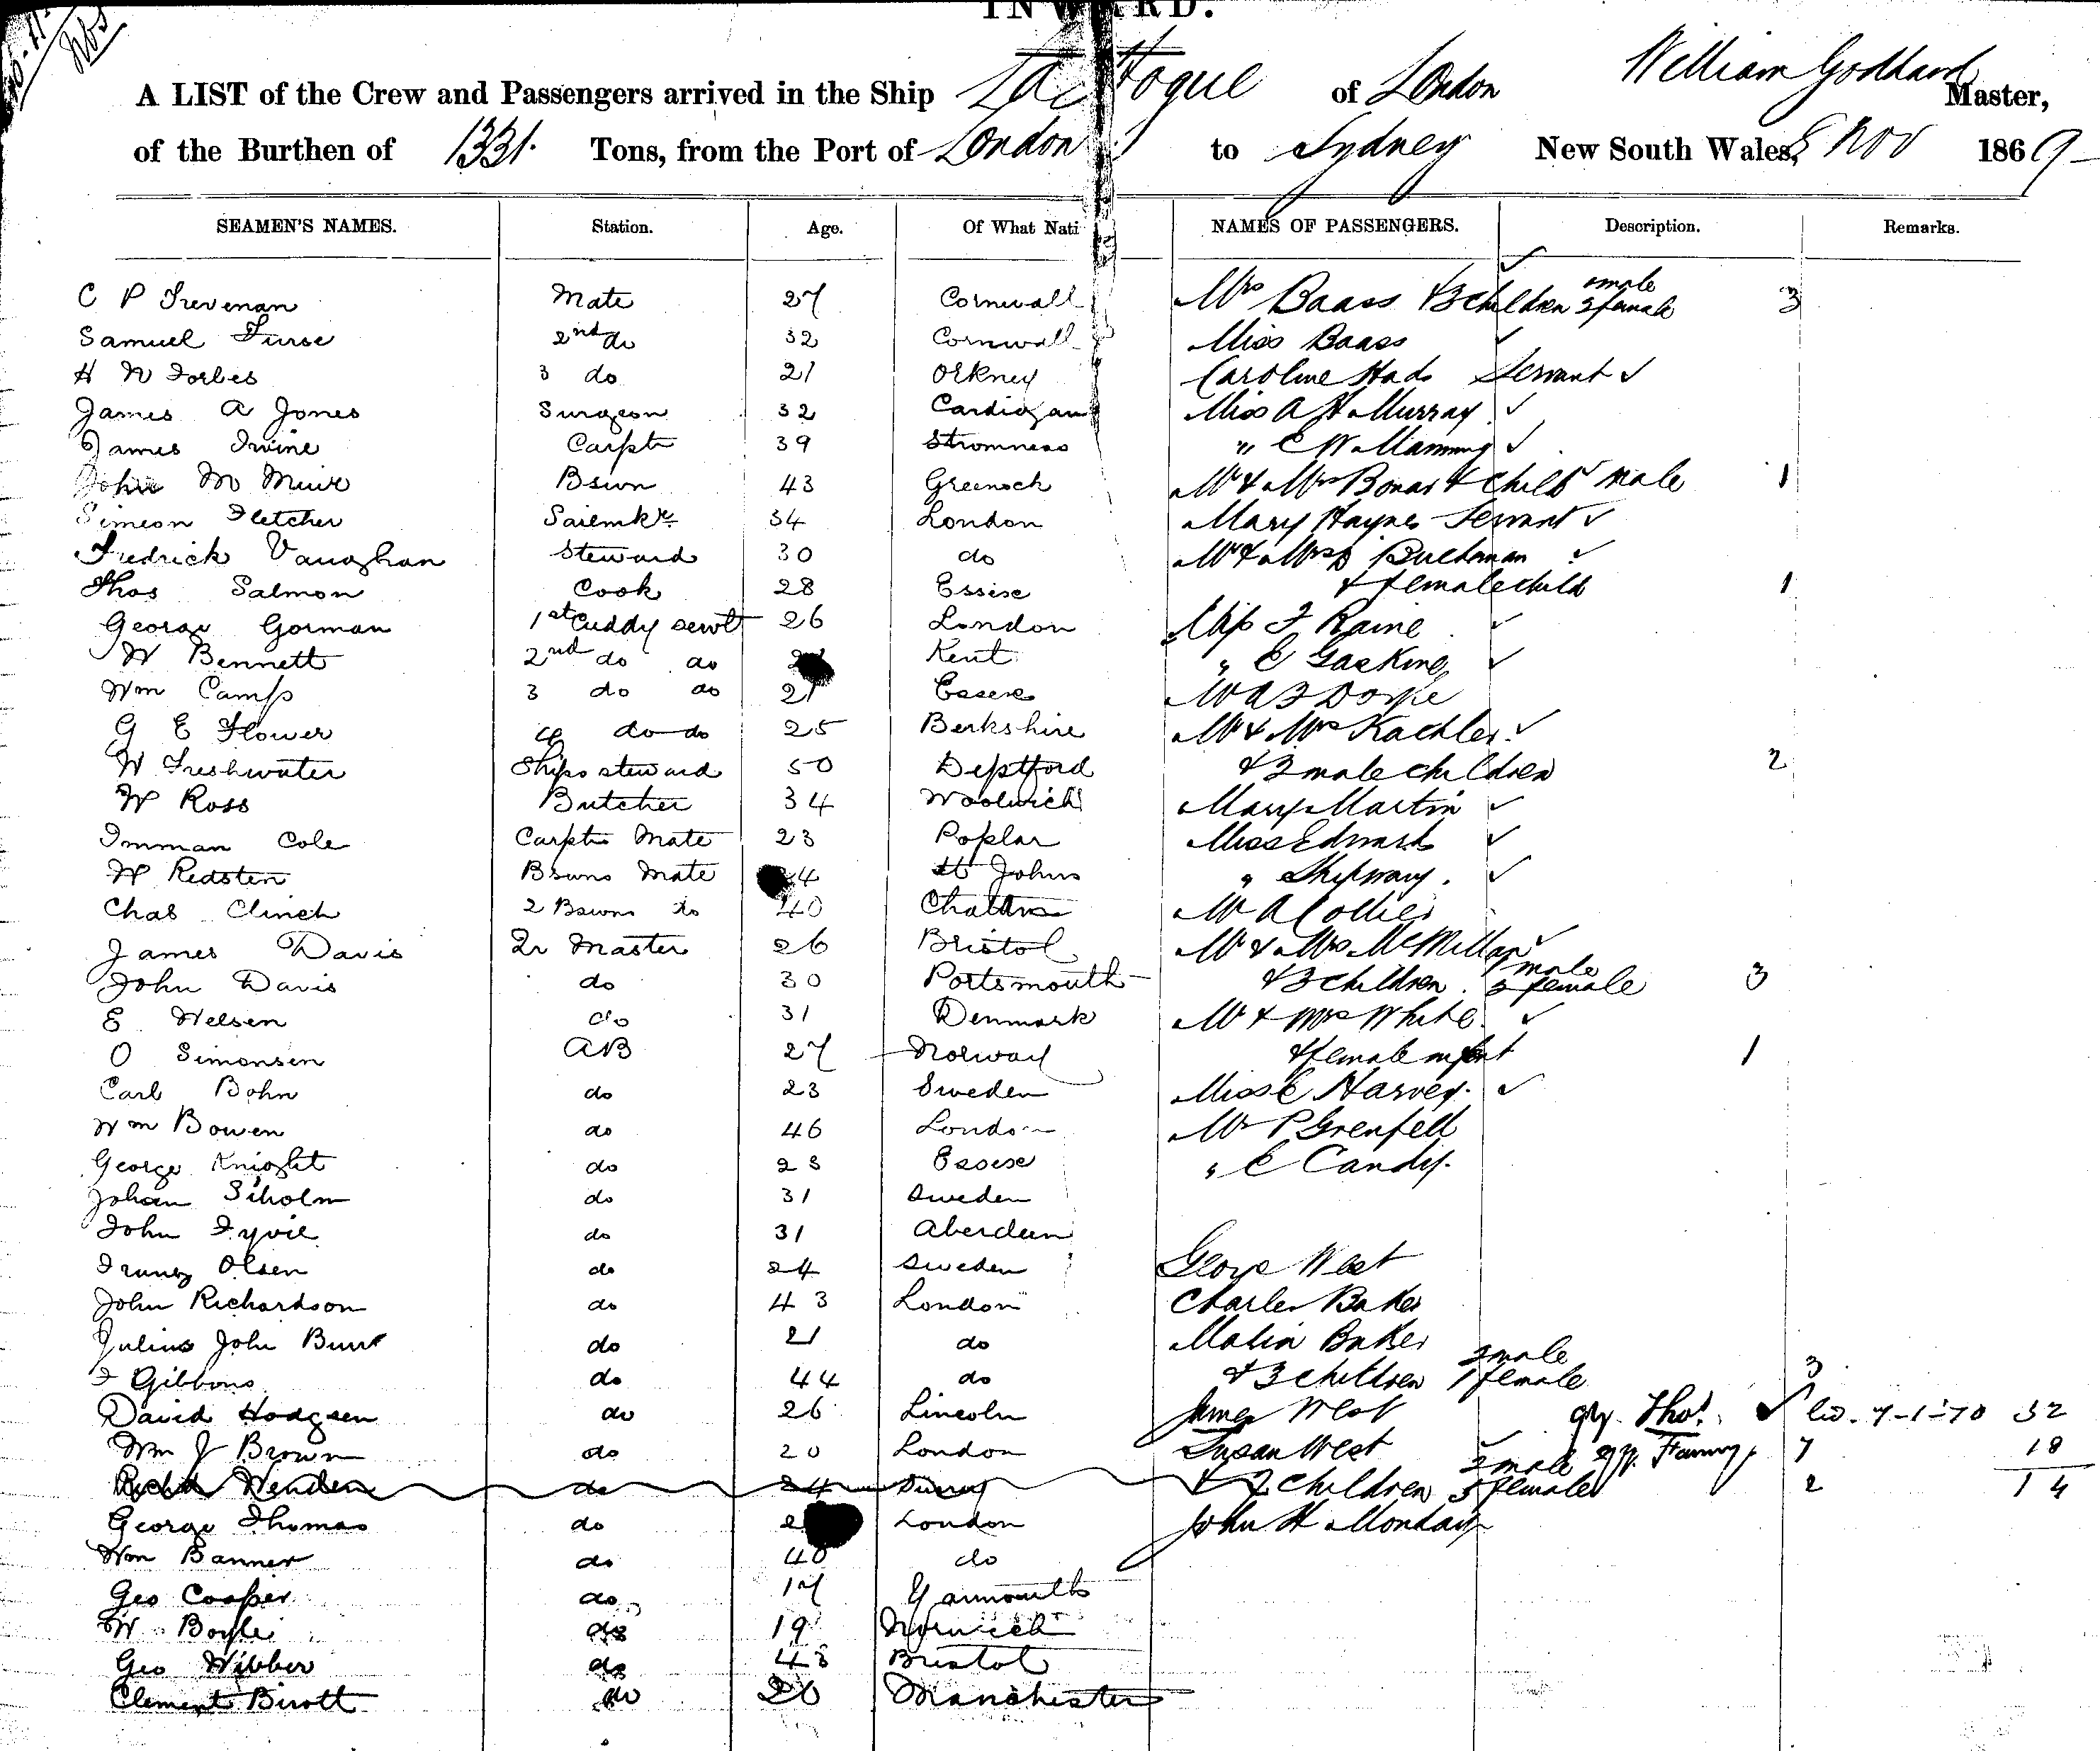 INWARD.
A LIST of the Crew and Passengers arrived in the Ship La Hogue of London William Goddard Master,
of the Burthen of 1331. Tons, from the Port of London to Sydney New South Wales, 8 Nov 1869
SEAMEN'S NAMES. Station. Age. Of What Nati NAMES OF PASSENGERS. Description. Remarks.
C P Trevenan Mate 27 Cornwall Mrs Baass & 3 children male 2 female 3
Samuel Furse 2nd do 32 Cornwall Miss Baass
H W Forbes 3 do 21 Orkney Caroline Servant
James A Jones Surgeon 32 Cardigan Miss A H Murray
James Irvine Carptr 39 Stromness " C W Manning
John M Muir Bswn 43 Greenock Mr & Mrs Bonar & child male 1
Simeon Fletcher Sailmkr 34 London Mary Haynes Servant
Fredrick Vaughan Steward 30 do Mr & Mrs Buchanan
Thos Salmon Cook 28 Essex & female child 1
George Gorman 1st Cuddy servt 26 London Miss F Raine
W Bennett 2nd do do Kent " C Gasking
Wm Camp 3 do do 21 Essex
G E Flower 4 do do 25 Berkshire Mr & Mrs Kachler
W Freshwater Ships steward 50 Deptford & 2 male children 2
W Ross Butcher 34 Woolwich Mary Martin
Inman Cole Carptrs Mate 23 Poplar Miss Edwards
W Redsten Bswns Mate 24 St Johns " Shipway
Chas Clinch 2 Bswns do 40 Chatham Mr A Collier
James Davis Qr Master 26 Bristol Mr & Mrs McMillan
John Davis do 30 Portsmouth & 3 children 1 male 2 female 3
E Nelsen do 31 Denmark Mr & Mrs White
O Simonsen AB 27 Norway & female infant 1
Carl Bohn do 23 Sweden Miss C Harvey
Wm Bowen do 46 London Mr P Grenfell
George Knight do 23 Essex " C Candy
Johan Siholm do 31 Sweden
John Fyvie do 31 Aberdeen
Franz Olsen do 24 Sweden George West
John Richardson do 43 London Charles Baker
Julius John Burr do 21 do Maria Baker
F Gibbons do 44 do & 3 children 2 male 1 female 3
David Hodgsen do 26 Lincoln James West qy. Thos. 7-1-70 32
Wm J Brown do 20 London Susan West qy. Fanny 7 18
Richd Henden do 24 Surrey & 7 children 2 male 5 female 2 14
George Thomas do London John H Monday
Wm Banner do 40 do
Geo Cooper do 17 Yarmouth
W Boyle do 19 Norwich
Geo Wibber do 43 Bristol
Clement Birott do 20 Manchester